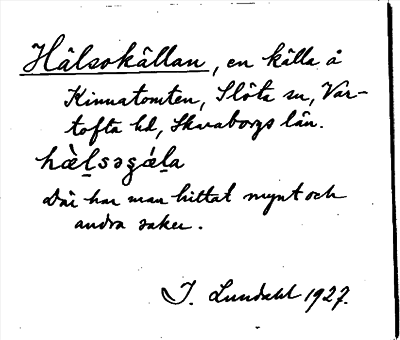 Hälsokällan, en källa å
Kinnatomten, Slöta sn, Var-
tofta hd, Skaraborgs län.
hæ̀l̠səȿǽl̠a
Där har man hittat mynt och
andra saker.
J. Lundahl 1927.